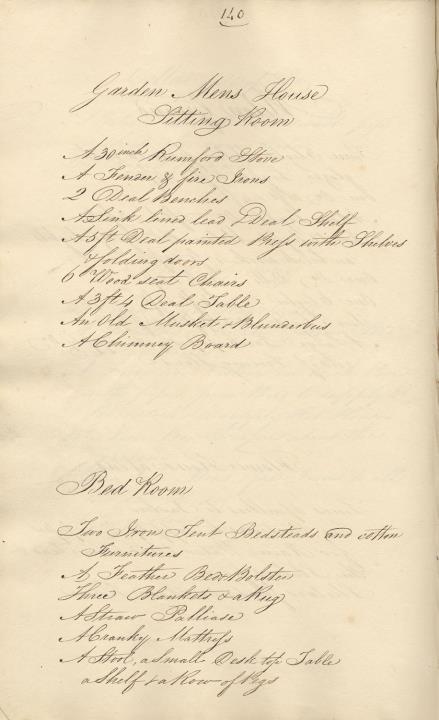 140
Garden Mens House
Sitting Room
A 30 inch Rumford Stove
A Fender & fire Irons
2 Deal Benches
A Sink lined lead & Deal Shelf
A 5 ft Deal painted Press with Shelves
& folding doors
6 Wood seat Chairs
A 3 ft 4 Deal Table
An Old Musket & Blunderbus
A Chimney Board
Bed Room
Two Iron Tent Bedsteads and cotton
Furnitures
A Feather Bed & Bolster
Three Blankets & a Rug
A Straw Palliase
A Cranky Mattrss
A Stool, a Small Desk top Table
a Shelf & a Row of Pegs